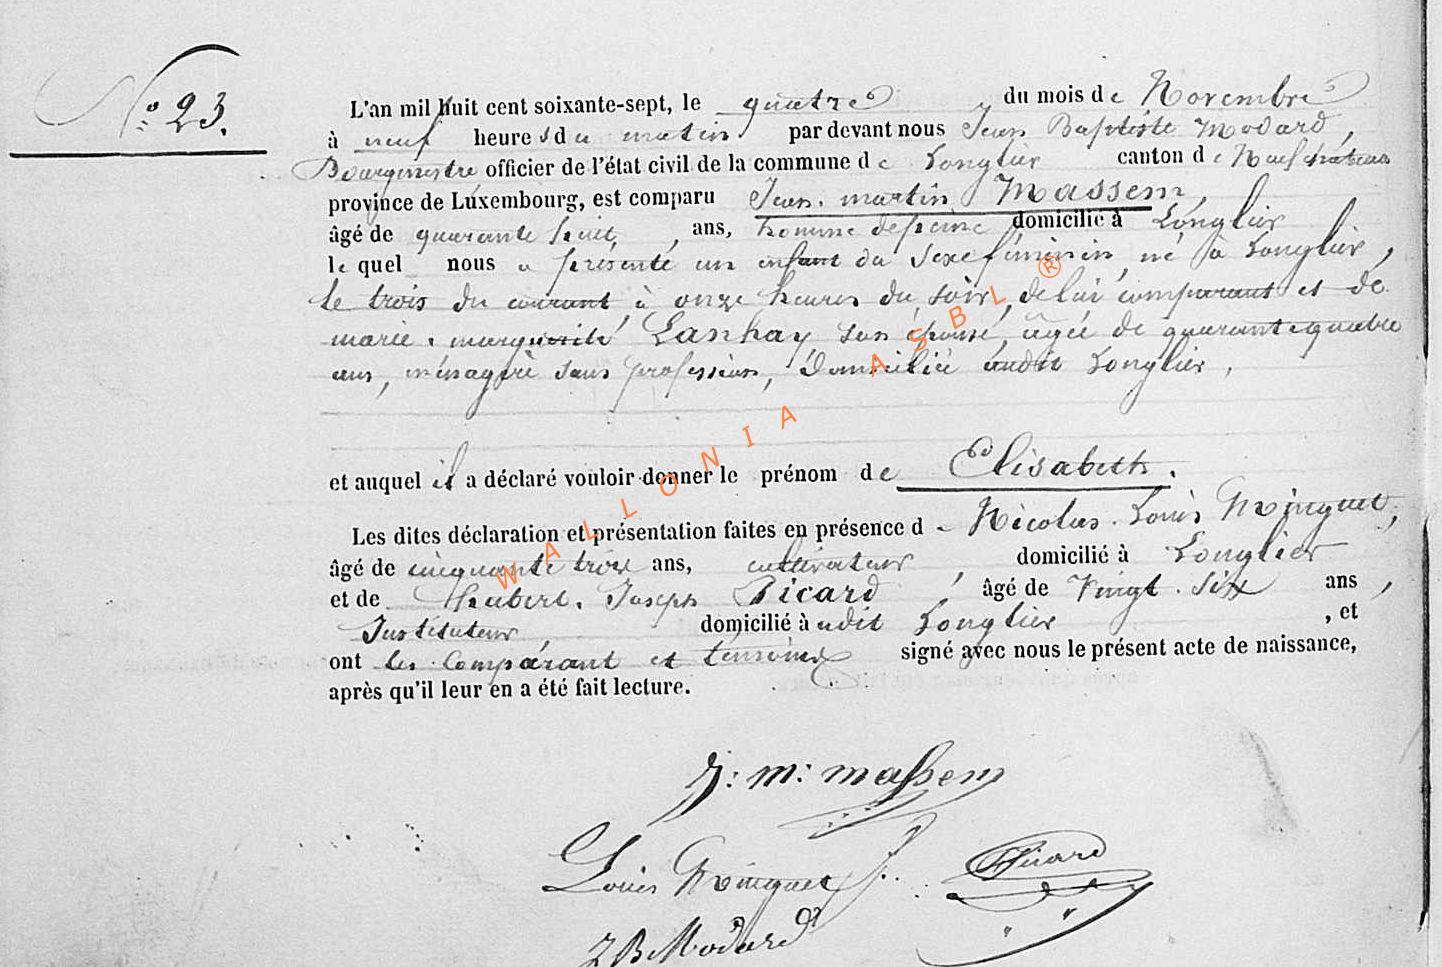 N° 23.
L'an mil huit cent soixante-sept, le quatre du mois de Novembre
à neuf heures du matin par devant nous Jean Baptiste Modard,
Bourgmestre officier de l'état civil de la commune de Longlier canton de Neufchâteau
province de Luxembourg, est comparu Jean. martin Massem,
âgé de quarante huit, ans, homme de peine domicilié à Longlier
lequel nous a présenté un enfant du Sexe féminin, né à Longlier,
le trois du courant, à onze heures du soir, de lui comparant et de
marie. marguerite Lanhay son épouse, âgée de quarante quatre
ans, ménagère sans profession, domiciliée audit Longlier,
et auquel il a déclaré vouloir donner le prénom de Elisabeth.
Les dites déclaration et présentation faites en présence de Nicolas. Louis
âgé de cinquante trois ans, cultivateur, domicilié à Longlier
et de Hubert. Joseph Picard, âgé de Vingt. Six ans,
Instituteur, domicilié à udit Longlier, et
ont les comparant et témoins signé avec nous le présent acte de naissance,
après qu'il leur en a été fait lecture.
J: m: massem
Louis
Picard
J B Modard
WALLONIA ASBL ®